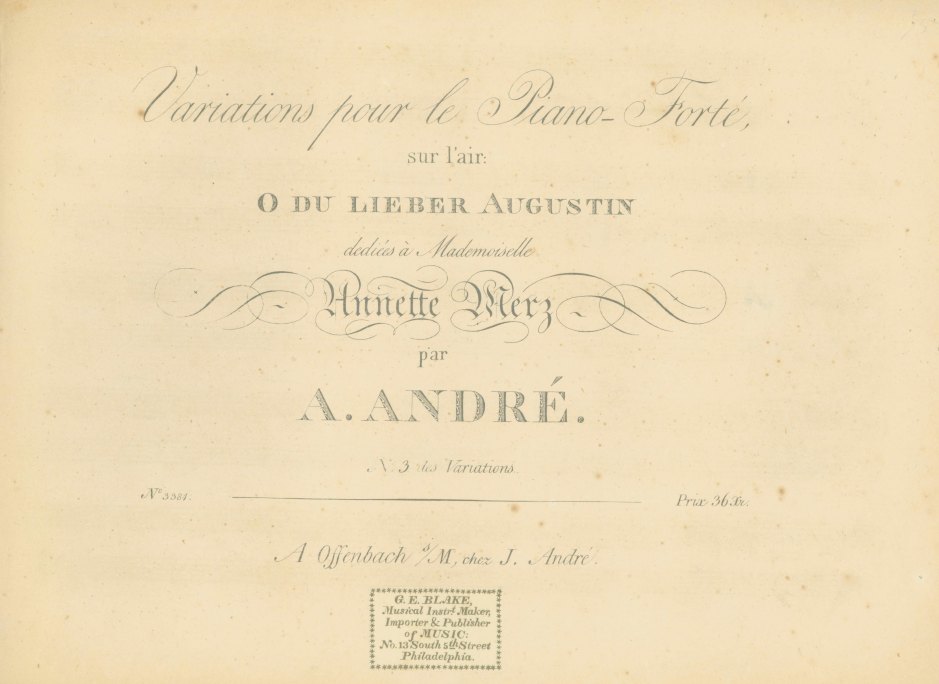 Variations pour le Piano-Forté,
sur l'air:
O DU LIEBER AUGUSTIN
dediées à Mademoiselle
Annette Merz
par
A. ANDRÉ.
N. 3 des Variations.
Nº 3381. Prix 36 Xr.
A Offenbach s/M, chez J. André.
G. E. BLAKE,
Musical Instrt. Maker,
Importer & Publisher
of MUSIC:
No. 13 South 5th Street
Philadelphia.